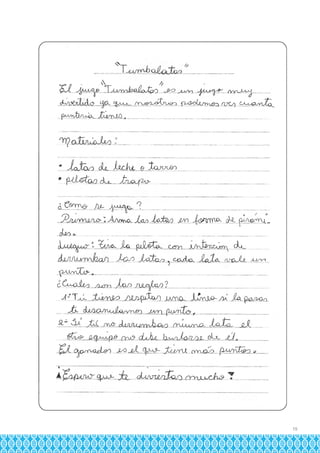 "Tumbalatas"
El juego "Tumbalatas" es un juego muy
divertido ya que nosotros podemos ver cuanta
punteria tienes.
Materiales:
• latas de leche o tarros
• pelotas de trapo
¿Cómo se juega?
Primero: Arma las latas en forma de pirámi-
des.
Luego: Tira la pelota con intención de
derrumbar las latas, cada lata vale un
punto.
¿Cuales son las reglas?
1º Tú tienes respetar una línea si la pasas
te desanulamos un punto.
2º Si tú no derrumbas niuna lata el
otro equipo no debe burlarse de él.
El ganador es el que tiene más puntos.
¡Espero que te diviertas mucho!